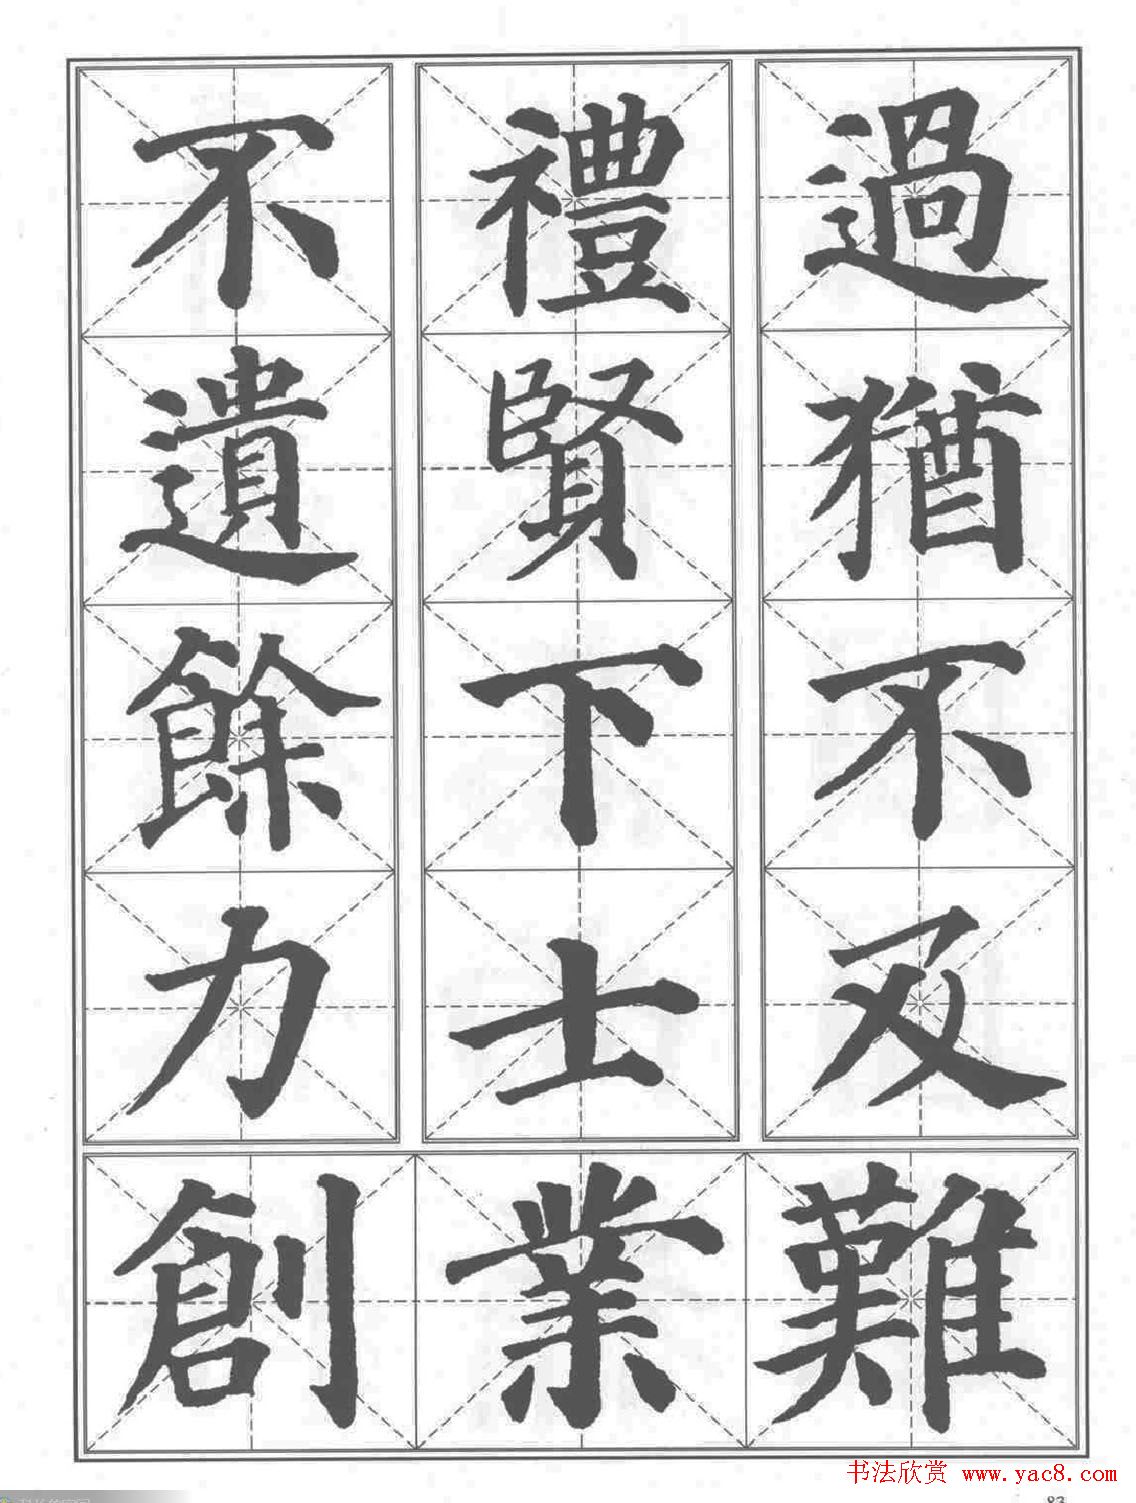 過猶不及
禮賢下士
不遺餘力
創業難
书法欣赏 www.yac8.com
83